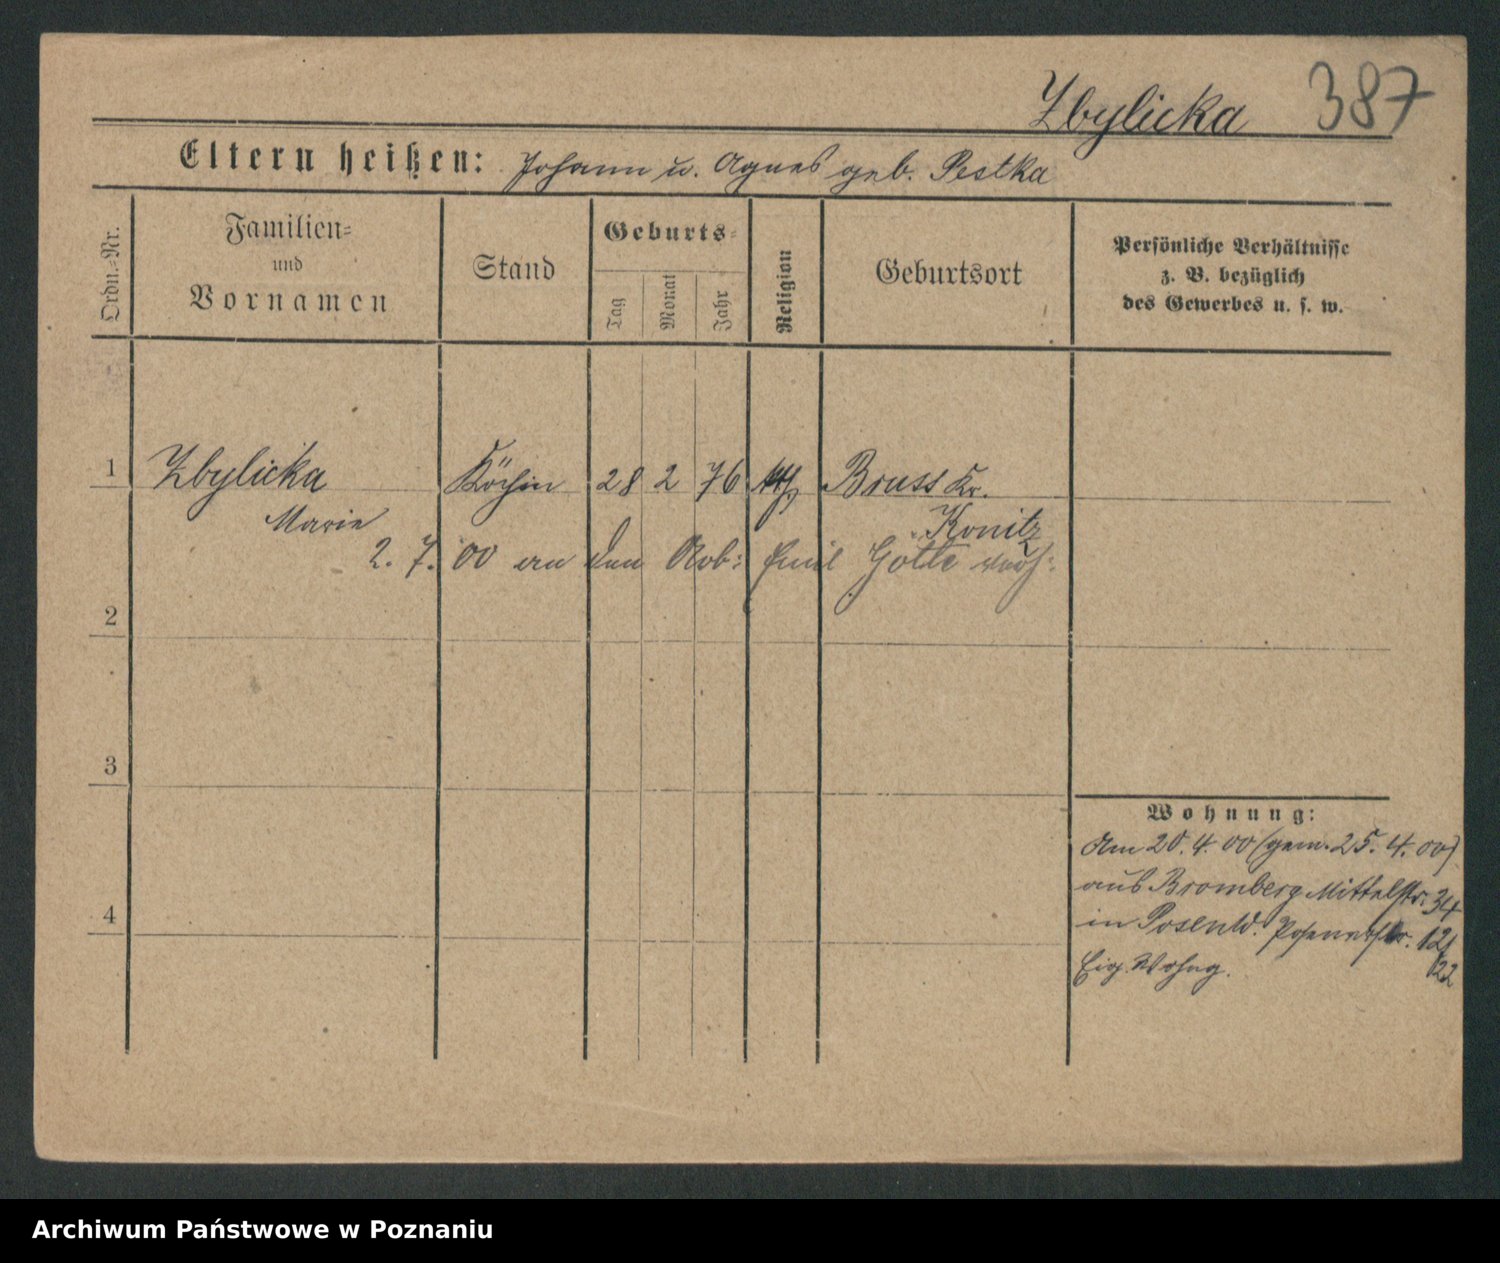 Zbylicka 387
Eltern heißen: Johann u. Agnes geb. Pestka
Ordn.-Nr.
Familien-
und
Vornamen
Stand
Geburts-
Tag
Monat
Jahr
Religion
Geburtsort
Persönliche Verhältnisse
z. B. bezüglich
des Gewerbes u. s. w.
1 Zbylicka Köchin 28 2 76 kth Bruss Kr.
Marie Konitz
2. 7. 00 an den Arb: Emil Götte verh:
2
3
4
Wohnung:
Am 20. 4. 00 (gem. 25. 4. 00)
aus Bromberg Mittelstr. 34
in Posen W. Posenerstr. 12
Eig. Wohng. 22
Archiwum Państwowe w Poznaniu